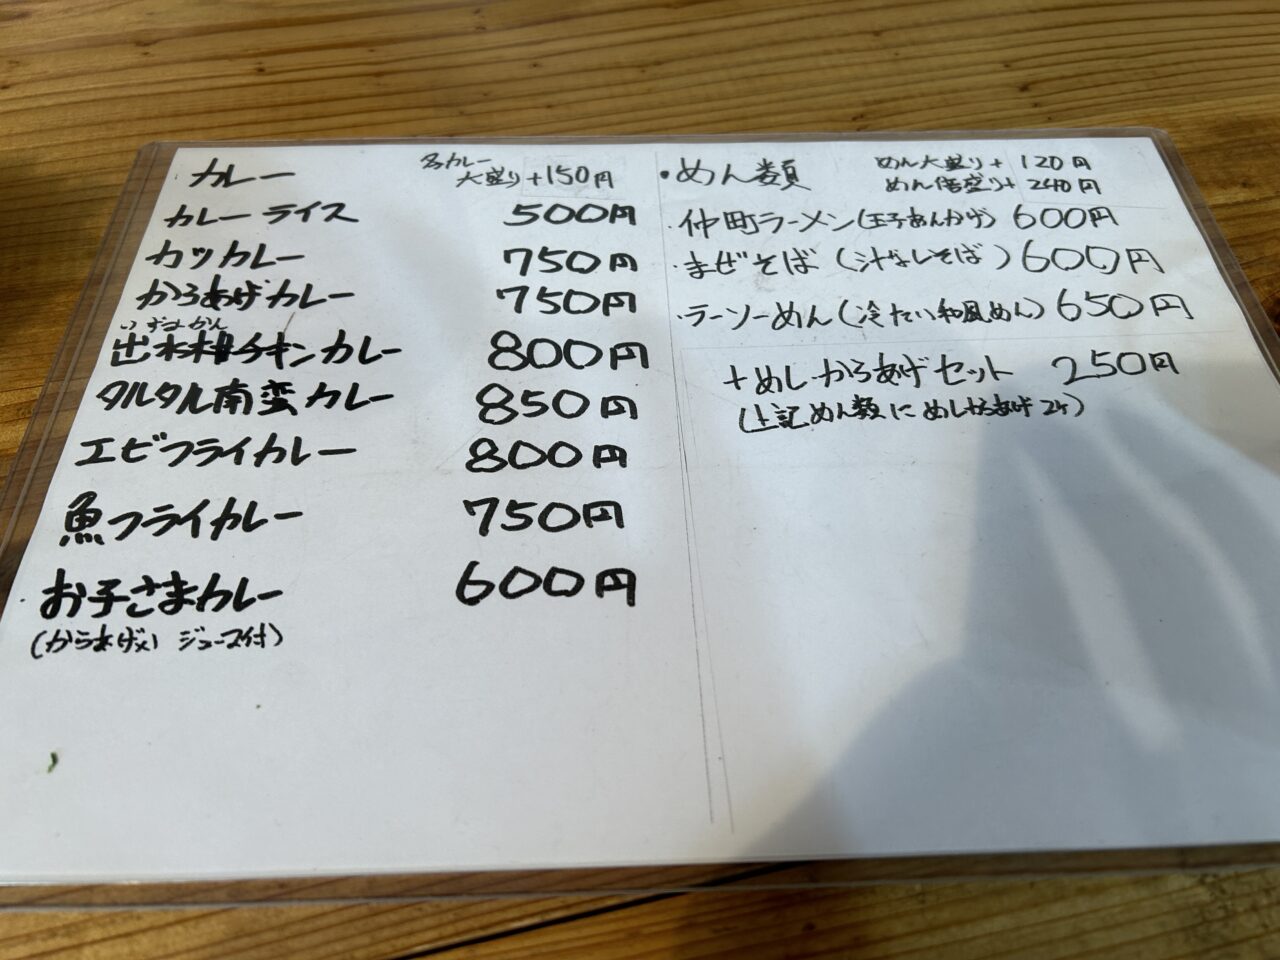 カレー
各カレー
大盛り +150円
カレーライス 500円
カツカレー 750円
からあげカレー 750円
いずみかん
出水柑チキンカレー 800円
タルタル南蛮カレー 850円
エビフライカレー 800円
魚フライカレー 750円
お子さまカレー 600円
(からあげ×1 ジュース付)
・めん類
めん大盛り+ 120円
めん倍盛り+ 240円
・仲町ラーメン(玉子あんかけ) 600円
・まぜそば (汁なしそば) 600円
・ラーソーめん(冷たい和風めん) 650円
+めし・からあげセット 250円
(上記めん類に めしからあげ2ケ)